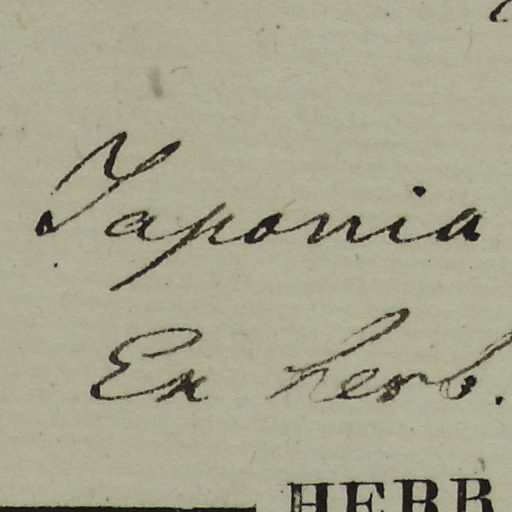 Japonia
Ex herb.
HERB